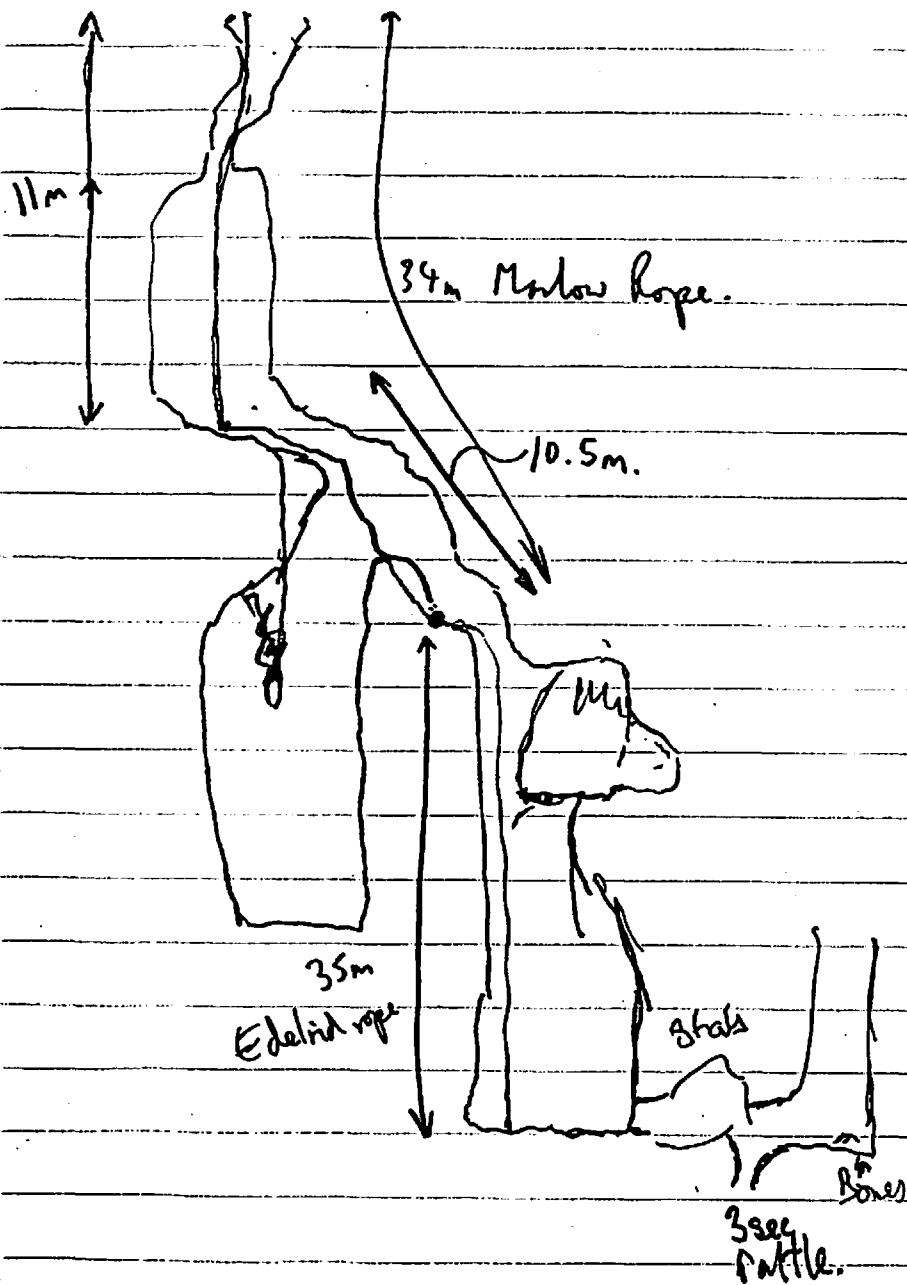 11m
34m Marlow Rope.
10.5m.
35m
Edelrid rope
Stals
Bones
3 sec
rattle.